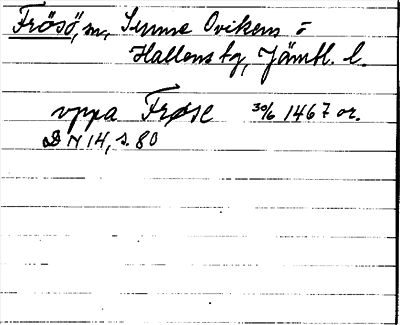 Frösö, sn, Sunne Ovikens o
Hallens tg, Jämtl. l.
vppa Frøse 30/6 1467 or.
DN 14, s. 80